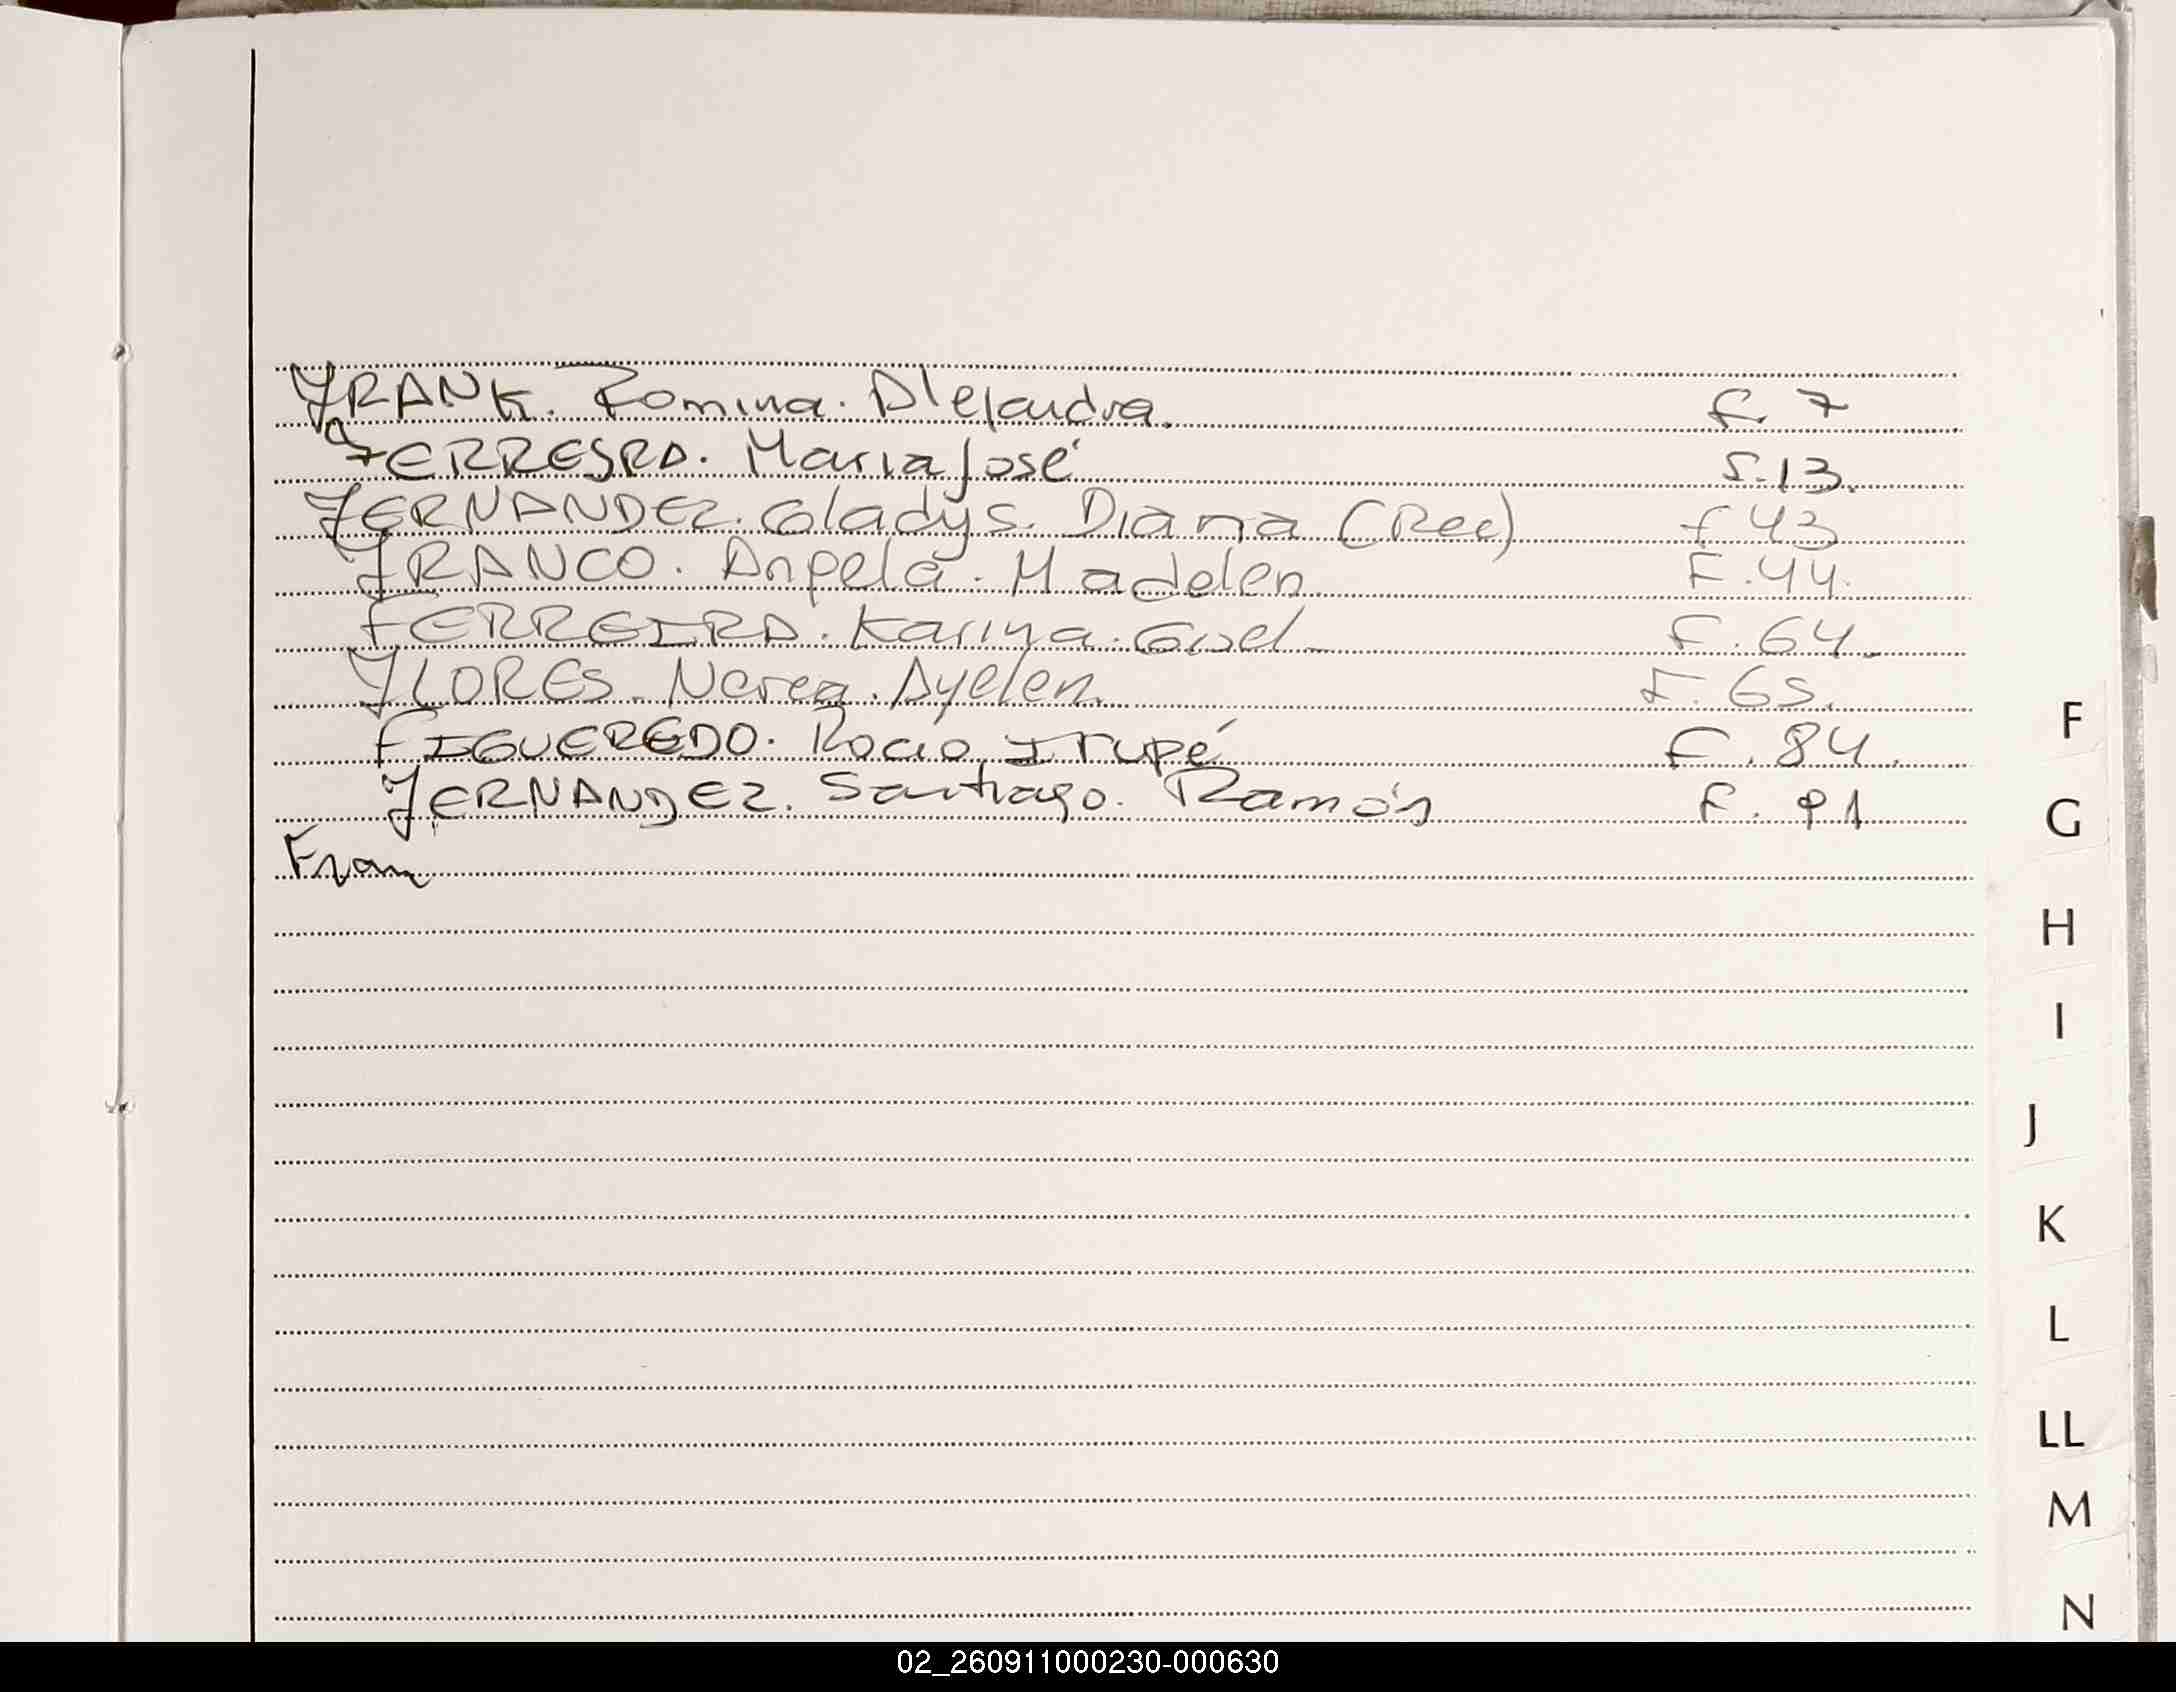 FRANK. Romina. Alejandra. F. 7
FERREYRA. Maria José F. 13.
FERNANDEZ. Gladys. Diana (Rec) F 43
FRANCO. Angela. Madelen F. 44.
FERREIRA. Karina. Gisel F. 64.
FLORES. Nerea. Ayelen. F. 65.
FIGUEREDO. Rocio Irupé F. 84.
FERNANDEZ. Santiago. Ramón F. 91
Fran
F
G
H
I
J
K
L
LL
M
N
02_260911000230-000630